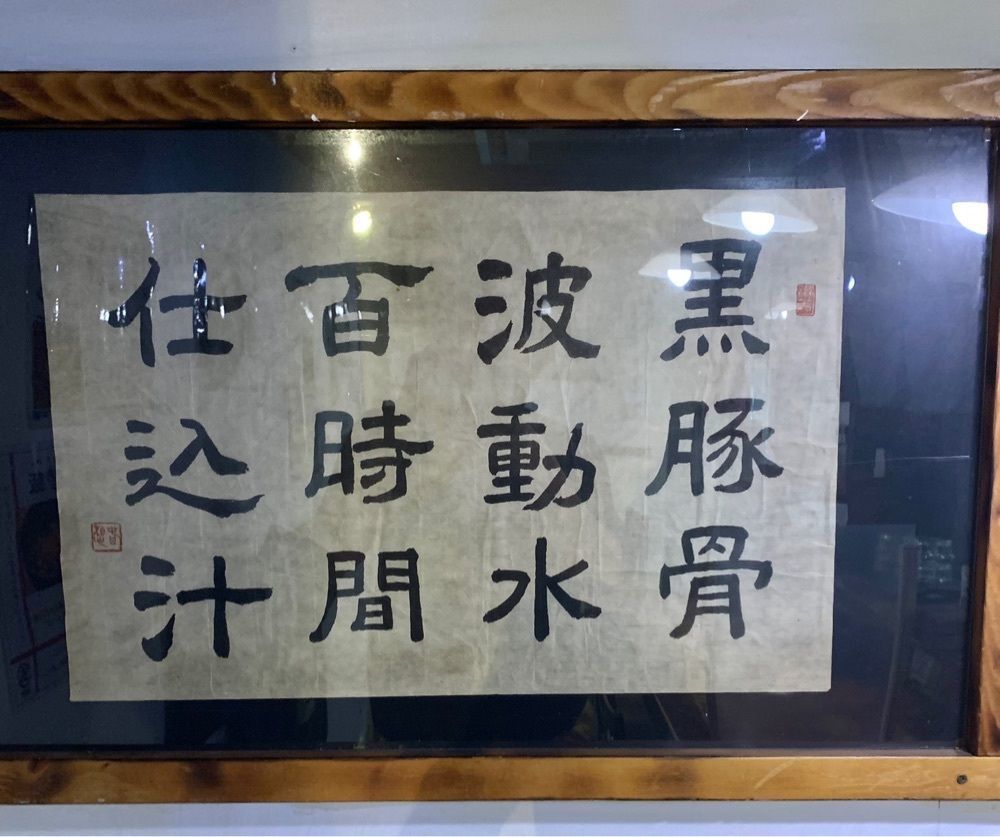 黒豚骨
波動水
百時間
仕込汁